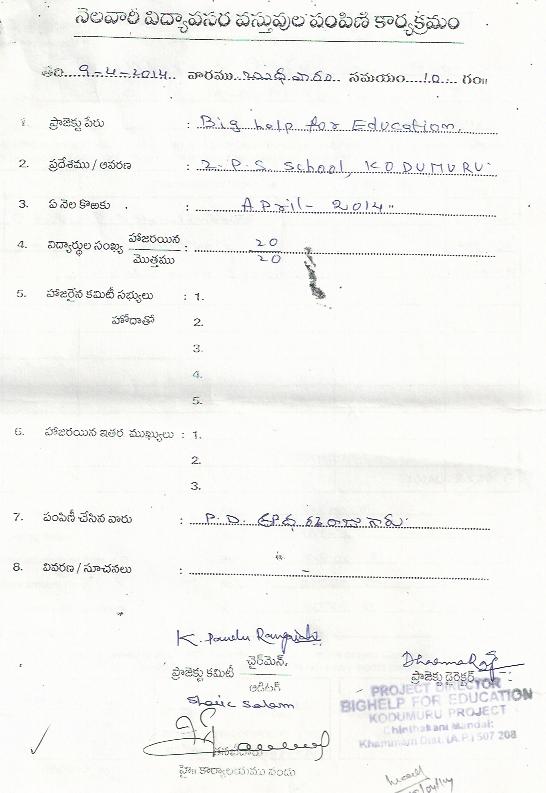 నెలవారి విద్యావసర వస్తువుల పంపిణి కార్యక్రమం
తేది.9-4-2014.. వారము. బుధవారం సమయం..10... గం॥
1. ప్రాజెక్టు పేరు : Big help for Education.
2. ప్రదేశము / ఆవరణ : Z.P.S. School, KODUMURU
3. ఏ నెల కొఱకు : April- 2014
4. విద్యార్థుల సంఖ్య హాజరయిన / మొత్తము : 20 / 20
5. హాజరైన కమిటీ సభ్యులు : 1.
హోదాతో 2.
3.
4.
5.
6. హాజరయిన ఇతర ముఖ్యులు : 1.
2.
3.
7. పంపిణీ చేసిన వారు : P.D. గారు.
8. వివరణ / సూచనలు : –
K. Pandu Rangaiah
ప్రాజెక్టు కమిటీ చైర్‌మెన్.
ఆడిటర్
Shaic Salam
హై॥ కార్యాలయము వందు
DharmaRaj
ప్రాజెక్టు డైరెక్టర్
PROJECT DIRECTOR
BIGHELP FOR EDUCATION
KODUMURU PROJECT
Chinthakani Mandal:
Khammam Dist. (A.P.) 507 208